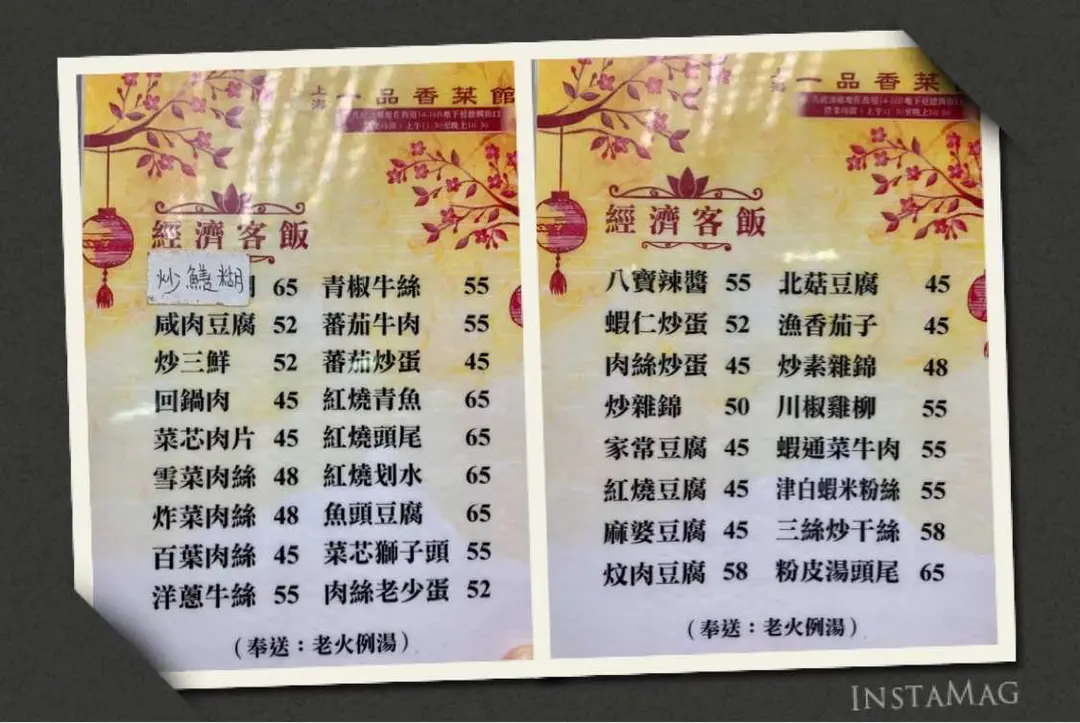 上海 一品香菜館
營業時間：上午11:30至晚上10:30
經濟客飯
炒鱔糊 65 青椒牛絲 55
咸肉豆腐 52 蕃茄牛肉 55
炒三鮮 52 蕃茄炒蛋 45
回鍋肉 45 紅燒青魚 65
菜芯肉片 45 紅燒頭尾 65
雪菜肉絲 48 紅燒划水 65
炸菜肉絲 48 魚頭豆腐 65
百葉肉絲 45 菜芯獅子頭 55
洋蔥牛絲 55 肉絲老少蛋 52
(奉送：老火例湯)
一品香菜館
營業時間：上午11:30至晚上10:30
經濟客飯
八寶辣醬 55 北菇豆腐 45
蝦仁炒蛋 52 漁香茄子 45
肉絲炒蛋 45 炒素雜錦 48
炒雜錦 50 川椒雞柳 55
家常豆腐 45 蝦通菜牛肉 55
紅燒豆腐 45 津白蝦米粉絲 55
麻婆豆腐 45 三絲炒干絲 58
炆肉豆腐 58 粉皮湯頭尾 65
(奉送：老火例湯)
INSTAMAG